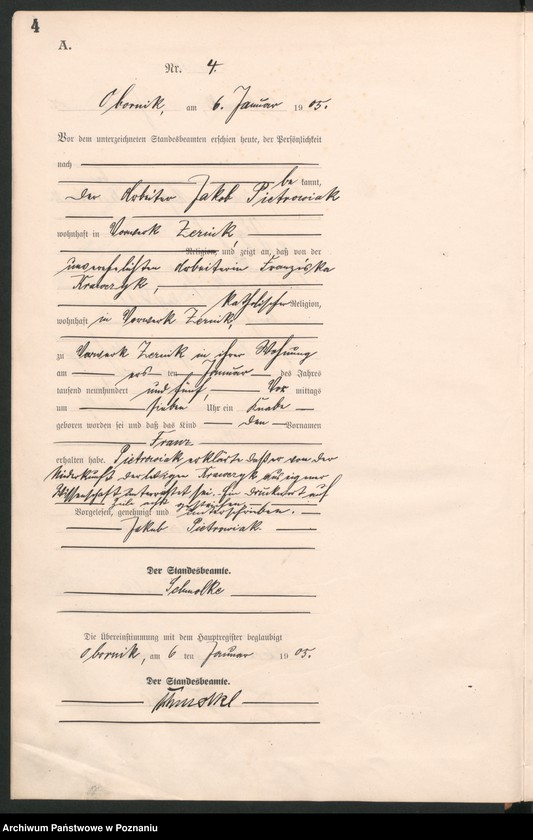 4
A.
Nr. 4.
Obornik, am 6. Januar 1905.
Vor dem unterzeichneten Standesbeamten erschien heute, der Persönlichkeit
nach
bekannt,
der Arbeiter Jakob Pietrowiak
wohnhaft in Vorwerk Zernik
Religion, und zeigt an, daß von der
unverehelichten Arbeiterin Franziska
Krawczyk,
katholischer Religion,
wohnhaft in Vorwerk Zernik,
zu Vorwerk Zernik in ihrer Wohnung
am ten Januar des Jahres
tausend neunhundert und fünf, Vormittags
um sieben Uhr ein Knabe
geboren worden sei und daß das Kind den Vornamen
Franz
erhalten habe. Pietrowiak erklärte daß er von der
Niederkunft der Krawczyk aus eigener
Wissenschaft unterrichtet sei. Ein Druckwort auf
Zeile acht gestrichen.
Vorgelesen, genehmigt und unterschrieben.
Jakob Pietrowiak
Der Standesbeamte.
Schmolke
Die Übereinstimmung mit dem Hauptregister beglaubigt
Obornik, am 6 ten Januar 1905.
Der Standesbeamte.
Archiwum Państwowe w Poznaniu